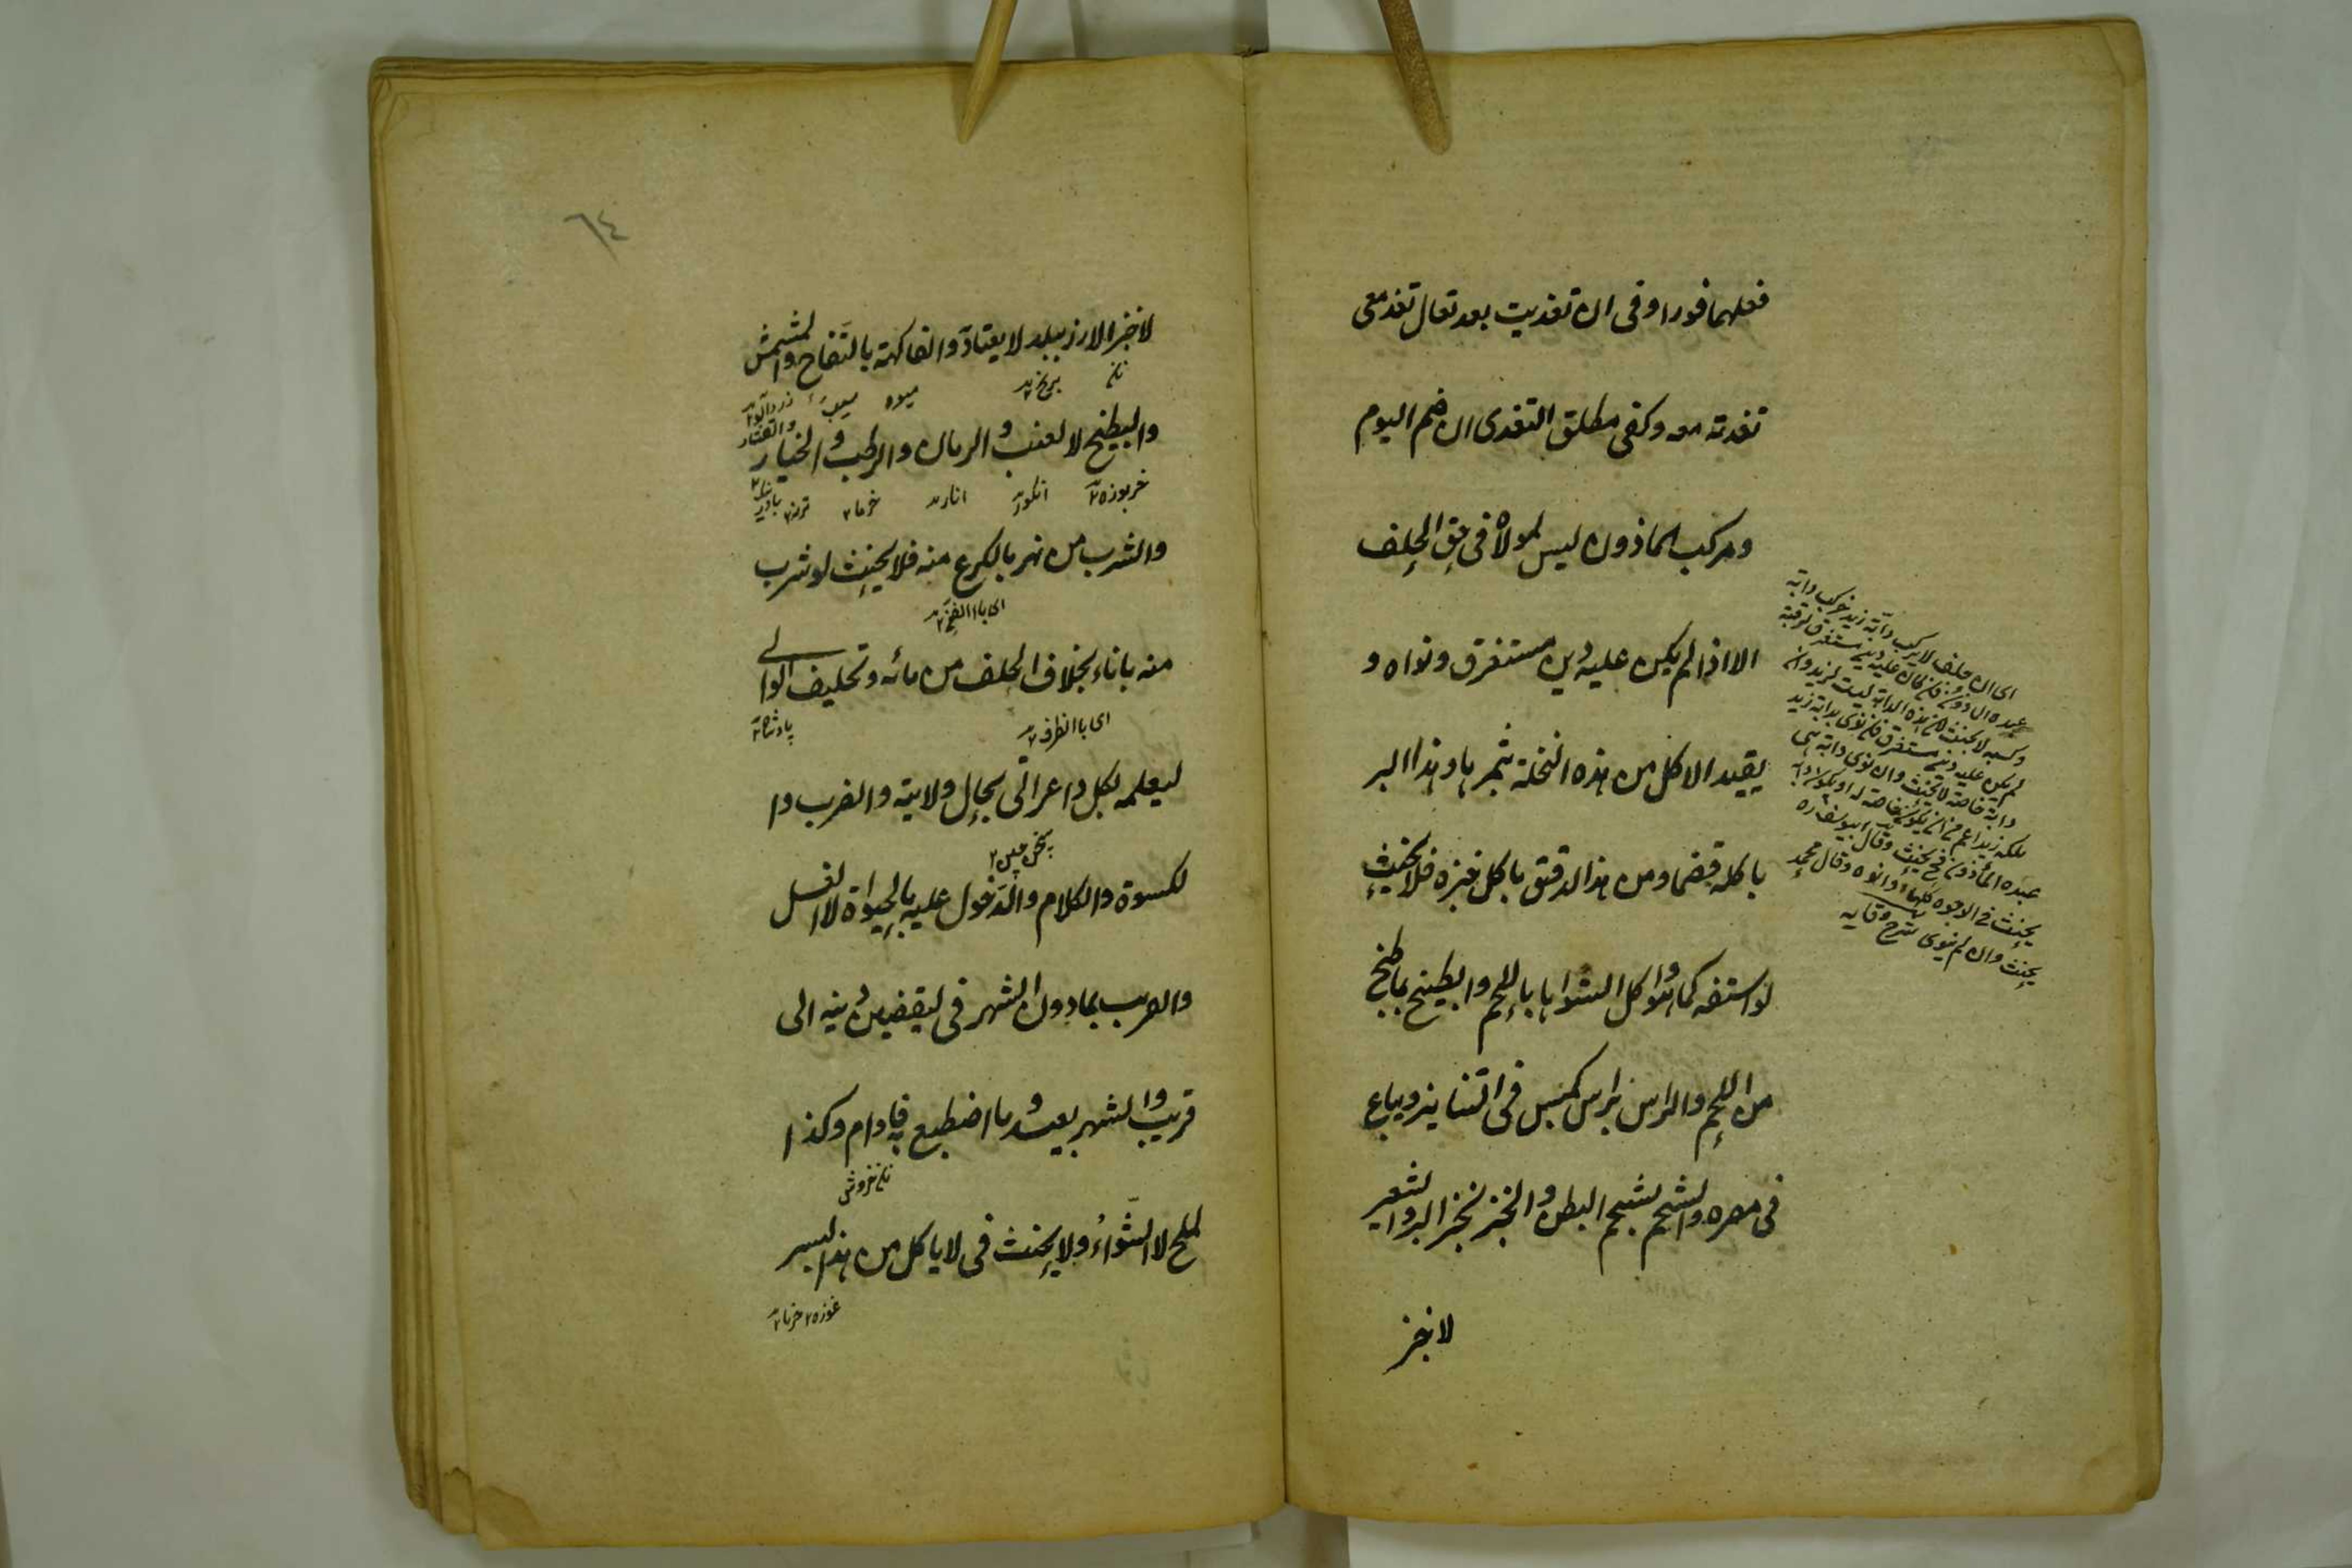 فعلهما فورا وفى ان تغديت بعد تعال تغد معى
تغديته معه وكفى مطلق التغدى ان ضم اليوم
ومركب الماذون ليس لمولاه فى حق الحلف
الا اذا لم يكن عليه دين مستغرق ونواه و
يقيد الاكل من هذه النخلة بثمرها وهذا البر
باكله قضما ومن هذا الدقيق باكل خبزه فلا يحنث
لو استفه كما هو واكل الشواء باللحم والطبيخ بما طبخ
من اللحم والراس براس يكبس فى التنانير ويباع
فى مصره والشحم بشحم البطن والخبز بخبز البر والشعير
لا خبز
اى ان حلف لا يركب دابة زيد فركب دابة
عبده الماذون فان كان عليه دين مستغرق لرقبته
وكسبه لا يحنث لان هذه الدابة ليست لزيد وان
لم يكن عليه دين مستغرق فان نوى بدابة زيد
دابة خاصة لا يحنث وان نوى دابة هى
ملك زيد اعم من ان يكون خاصة له او يكون دابة
عبده الماذون فح يحنث وقال ابو يوسف ره
يحنث فى الوجوه كلها اذا نواه وقال محمد
يحنث وان لم ينوى شرح وقايه
٦٤
لا خبز الارز ببلد لا يعتاد والفاكهة بالتفاح والمشمش
نان برنج ميوه سيب زردآلو
والبطيخ لا العنب والرمان والرطب والخيار والقثاء
خربوزه انگور انار خرما ترنج بادرنگ
والشرب من نهر بالكرع منه فلا يحنث لو شرب
منه باناء بخلاف الحلف من مائه وتحليف الوالى
اى با الظرف پادشاه
ليعلمه بكل داعر اتى بحال ولايته والضرب وا
لكسوة والكلام والدخول عليه بالحيوة لا الغسل
والقريب بما دون الشهر فى ليقضين دينه الى
قريب والشهر بعيد وما اضطبع به فادام وكذا
نان خروش
لملح لا الشواء ولا يحنث فى لا ياكل من هذا البسر
غوزه خرما